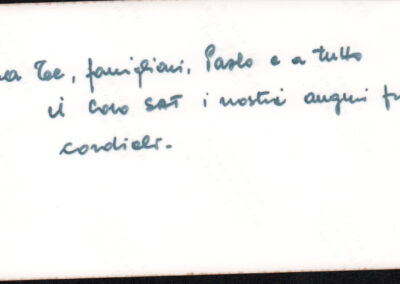 a Te, famigliari, Paolo e a tutto
il Coro SAT i nostri auguri
cordiali.